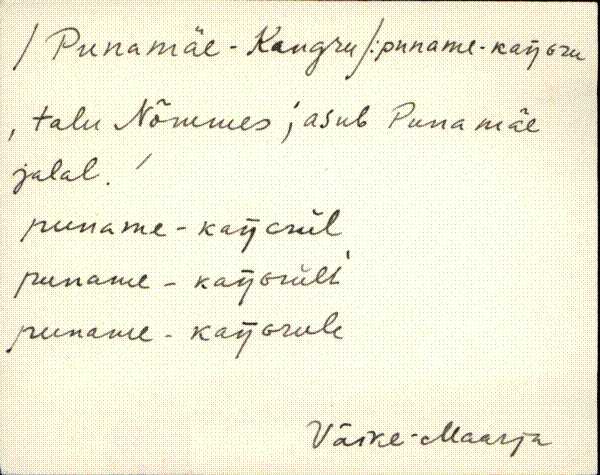 /Punamäe-Kangru/: puname-kaŋɢru
, talu Nõmmes; asub Punamäe
jalal.'
puname-kaŋɢrül
puname-kaŋɢrült
puname-kaŋɢrule
Väike-Maarja